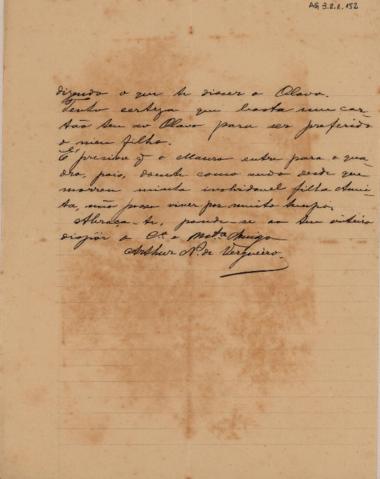 AG 3.2.2.152
dizendo o que te disser o Olavo.
Tenho certeza que basta um car-
tão teu ao Olavo para ser preferido
o meu filho.
É preciso q o Mauro entre para o qua-
dro, pois, doente como ando desde que
morreu minha inolvidavel filha Anni-
ta, não posso viver por muito tempo.
Abraça-te, pondo-se ao teu inteiro
dispôr o C.º e Mᵗᵒ Amigo
Arthur N. de Vergueiro.